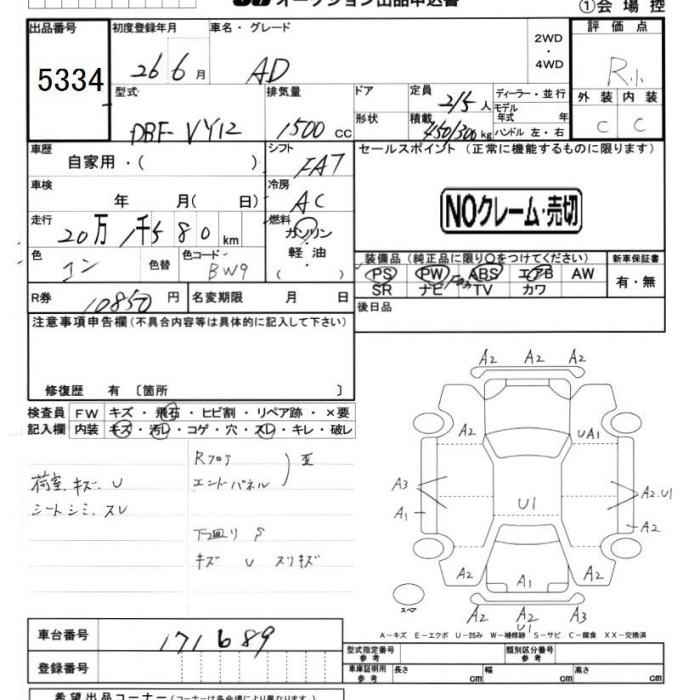 オークション出品申込書
①会場控
出品番号
5334
初度登録年月
26 6月
車名・グレード
AD
2WD
・
4WD
評価点
R小
型式
DBF-VY12
排気量
1500 cc
ドア
形状
定員
2/5人
積載
450/300kg
ディーラー・並行
モデル年式 年
ハンドル 左・右
外装 内装
C C
車歴
自家用・( )
シフト
FA7
セールスポイント(正常に機能するものに限ります)
車検
年 月( 日)
冷房
AC
NOクレーム・売切
走行
20万1千580km
燃料
ガソリン
・
軽油
( )
色
コン
色替
色コード
BW9
装備品(純正品に限り○をつけてください)
PS PW ABS エアB AW
SR ナビ TV カワ
新車保証書
有・無
R券
10850円
名変期限 月 日
後日品
注意事項申告欄(不具合内容等は具体的に記入して下さい)
修復歴 有〔箇所 〕
検査員記入欄
FW キズ・飛石・ヒビ割・リペア跡・×要
内装 キズ・汚レ・コゲ・穴・スレ・キレ・破レ
荷室キズ U
シートシミ、スレ
Rフロア
エンドパネル
下回り S
キズ U スリキズ
A2 A2 A2
A2 UA1
A3 A2.U1
A1 U1 A2
A2 A1 A2
A2 A2 A3
U1
スペア
A-キズ E-エクボ U-凹み W-補修跡 S-サビ C-腐食 XX-交換済
車台番号
171689
登録番号
型式指定番号
参考
類別区分番号
参考
車庫証明用
参考
長さ cm
幅 cm
高さ cm
希望出品コーナー(コーナーは各会場により異なります)